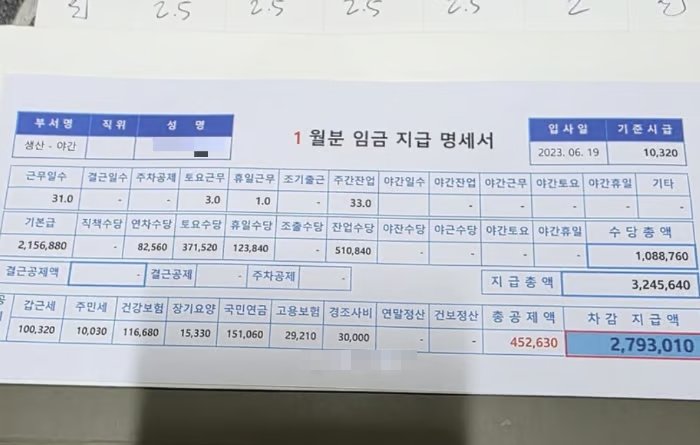 2.5 2.5 2.5 2.5 2
1 월분 임금 지급 명세서
부서명 직위 성 명
생산 - 야간
입사일 기준시급
2023. 06. 19 10,320
근무일수 결근일수 주차공제 토요근무 휴일근무 조기출근 주간잔업 야간일수 야간잔업 야간근무 야간토요 야간휴일 기타
31.0 - - 3.0 1.0 - 33.0 - - - - -
기본급 직책수당 연차수당 토요수당 휴일수당 조출수당 잔업수당 야잔수당 야근수당 야간토요 야간휴일 수 당 총 액
2,156,880 - 82,560 371,520 123,840 - 510,840 - - - - 1,088,760
결근공제액 - 결근공제 - 주차공제 - 지 급 총 액 3,245,640
갑근세 주민세 건강보험 장기요양 국민연금 고용보험 경조사비 연말정산 건보정산 총 공 제 액 차 감 지 급 액
100,320 10,030 116,680 15,330 151,060 29,210 30,000 - - 452,630 2,793,010